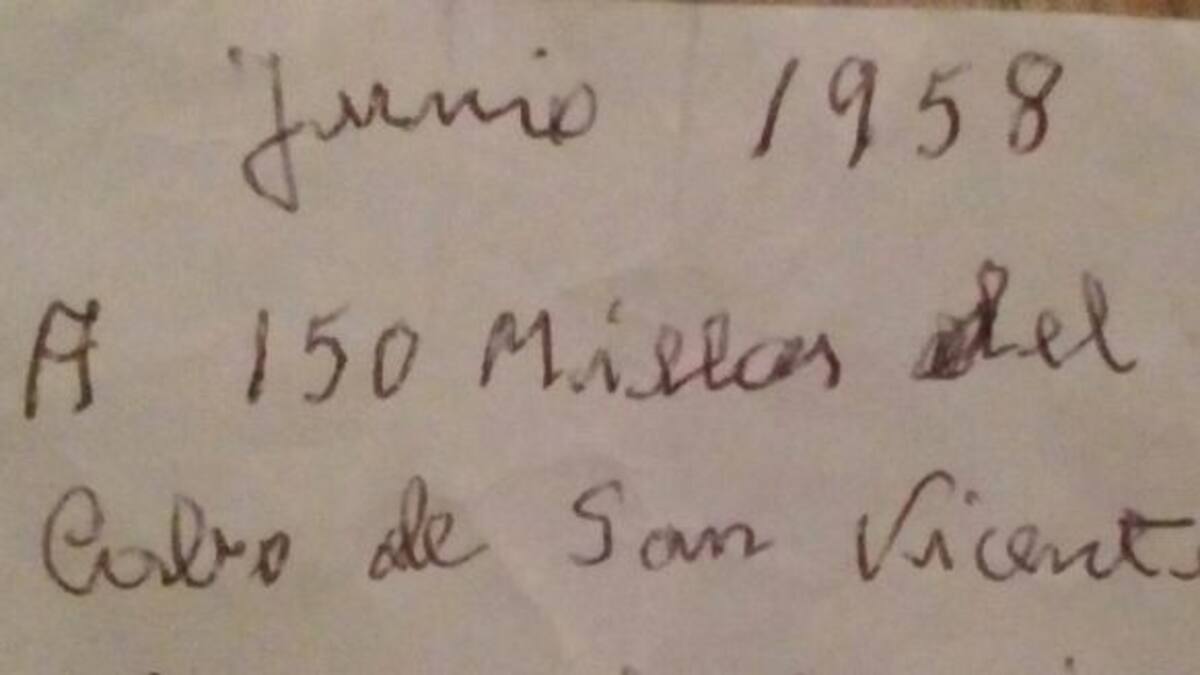 Junio 1958
A 150 Millas del
Cabo de San Vicente